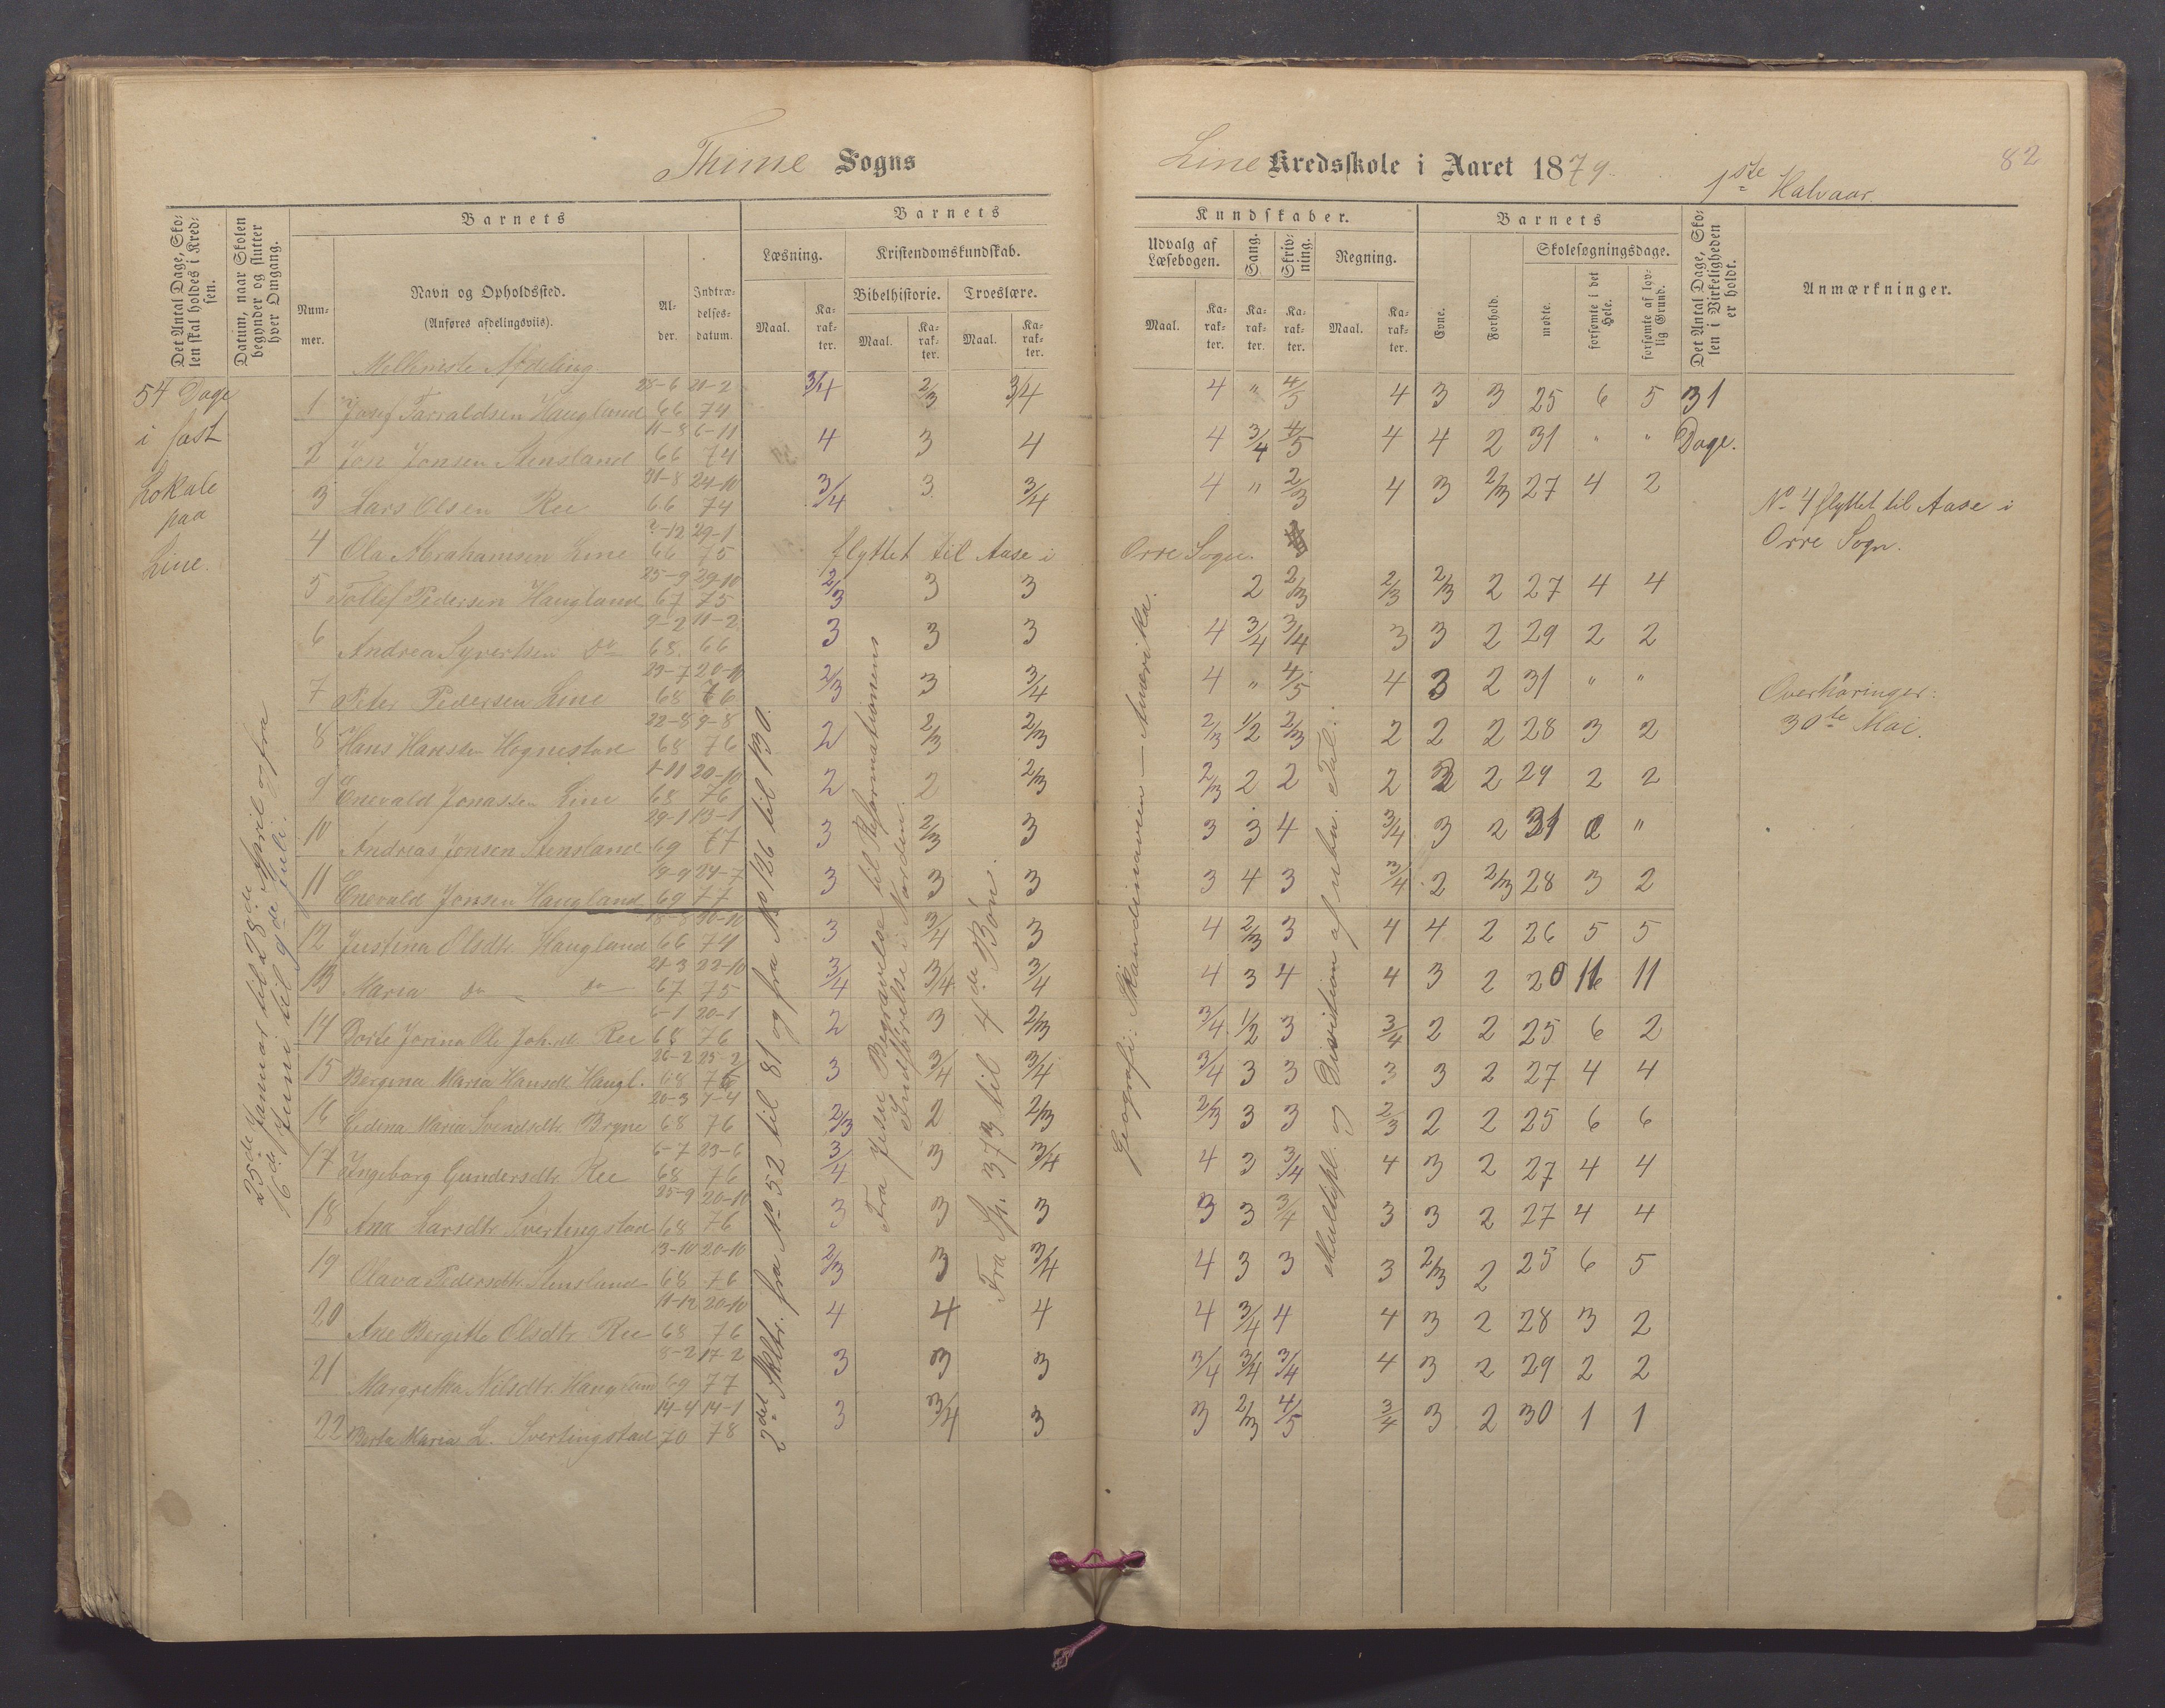 Thime Sogns
Line Kredsskole i Aaret 1879.
1ste Halvaar.
82
Det Antal Dage, Skolen skal holdes i Kredsen.
Datum, naar Skolen begynder og slutter hver Omgang.
Barnets
Nummer.
Navn og Opholdssted.
(Anføres afdelingsviis).
Alder.
Indtrædelsesdatum.
Barnets
Læsning.
Maal.
Karakter.
Kristendomskundskab.
Bibelhistorie.
Maal.
Karakter.
Troeslære.
Maal.
Karakter.
Kundskaber.
Udvalg af Læsebogen.
Maal.
Karakter.
Sang.
Karakter.
Skrivning.
Karakter.
Regning.
Maal.
Karakter.
Barnets
Evne.
Forhold.
Skolesøgningsdage.
mødte.
forsømte i det Hele.
forsømte af lovlig Grund.
Det Antal Dage, Skolen i Virkeligheden er holdt.
Anmærkninger.
Mellemste Afdeling
54 Dage
i fast
Lokale
paa
Line.
25de Januar til 28de April og fra
16de Juni til 9de Juli.
2det Skltr. fra No 52 til 81 og fra No 126 til 130.
Fra Jesu Begravelse til Reformationens
Indførelse i Norden.
Fra Sp. 373 til 4de Bøn.
Geografi: Skandinavien — Amerika.
Multipl. og Division af uben. Tal.
1 Josef Tarraldsen Haugland 28-6 66 21-2 74 3/4 2/3 3/4 4 " 4/5 4 3 3 25 6 5 31
2 Jon Jonsen Stensland 11-8 66 6-11 74 4 3 4 4 3/4 4/5 4 4 2 31 " " Dage.
3 Lars Olsen Ree 31-8 66 24-10 74 3/4 3 3/4 4 " 2/3 4 3 2/3 27 4 2
4 Ola Abrahamsen Line ?-12 66 29-1 75 flyttet til Aase i Orre Sogn.
5 Tollef Pedersen Haugland 25-9 67 29-10 75 2/3 3 3 2 2/3 2/3 2/3 2 27 4 4
6 Andrea Syvertsen do 9-2 68 11-2 66 3 3 3 4 3/4 3/4 3 3 2 29 2 2
7 Peter Pedersen Line 29-7 68 20-10 76 2/3 3 3/4 4 " 4/5 4 3 2 31 " "
8 Hans Hansen Hognestad 22-8 68 9-8 76 2 2/3 2/3 2/3 1/2 2/3 2 2 2 28 3 2
9 Enevald Jonassen Line 1-11 68 20-10 76 2 2 2/3 2/3 2 2 2 3 2 29 2 2
10 Andreas Jonsen Stensland 29-1 69 13-1 77 3 2/3 3 3 3 4 3/4 3 2 31 "
11 Enevald Jonsen Haugland 19-9 69 24-7 77 3 3 3 3 4 3 3/4 2 2/3 28 3 2
12 Justina Olsdtr. Haugland 18-8 66 30-10 74 3 3/4 3 4 2/3 3 4 4 2 26 5 5
13 Maria do do 21-3 67 22-10 75 3/4 3/4 3/4 4 3 4 4 3 2 20 11 11
14 Dorte Jorina Ole Joh.dt. Ree 6-1 68 20-1 76 2 3 2/3 3/4 1/2 3 3/4 2 2 25 6 2
15 Bergina Maria Hansdt. Haugl. 26-2 68 25-2 76 3 3/4 3/4 3/4 3 3 3 3 2 27 4 4
16 Edina Maria Svendsdtr. Bryne 20-3 68 7-4 76 2/3 2 2/3 2/3 3 3 2/3 2 2 25 6 6
17 Ingeborg Gundersdtr. Ree 6-7 68 29-6 76 3/4 3 3/4 4 3 3/4 4 3 2 27 4 4
18 Ana Larsdtr Svertingstad 25-9 68 20-10 76 3 3 3 3 3 3/4 3 3 2 27 4 4
19 Olava Pedersdtr. Stensland 13-10 68 20-10 76 2/3 3 3/4 4 3 3 3 2/3 2 25 6 5
20 Ane Bergitte Olsdtr. Ree 11-12 68 20-10 76 4 4 4 4 3/4 4 4 3 2 28 3 2
21 Margretha Nilsdtr. Haugland 8-2 69 17-2 77 3 3 3 3/4 3/4 3/4 4 3 2 29 2 2
22 Berta Maria L. Svertingstad 14-4 70 14-1 78 3 3/4 3 3 2/3 4/5 3/4 3 2 30 1 1
No 4 flyttet til Aase i
Orre Sogn.
Overhøringer:
30te Mai.